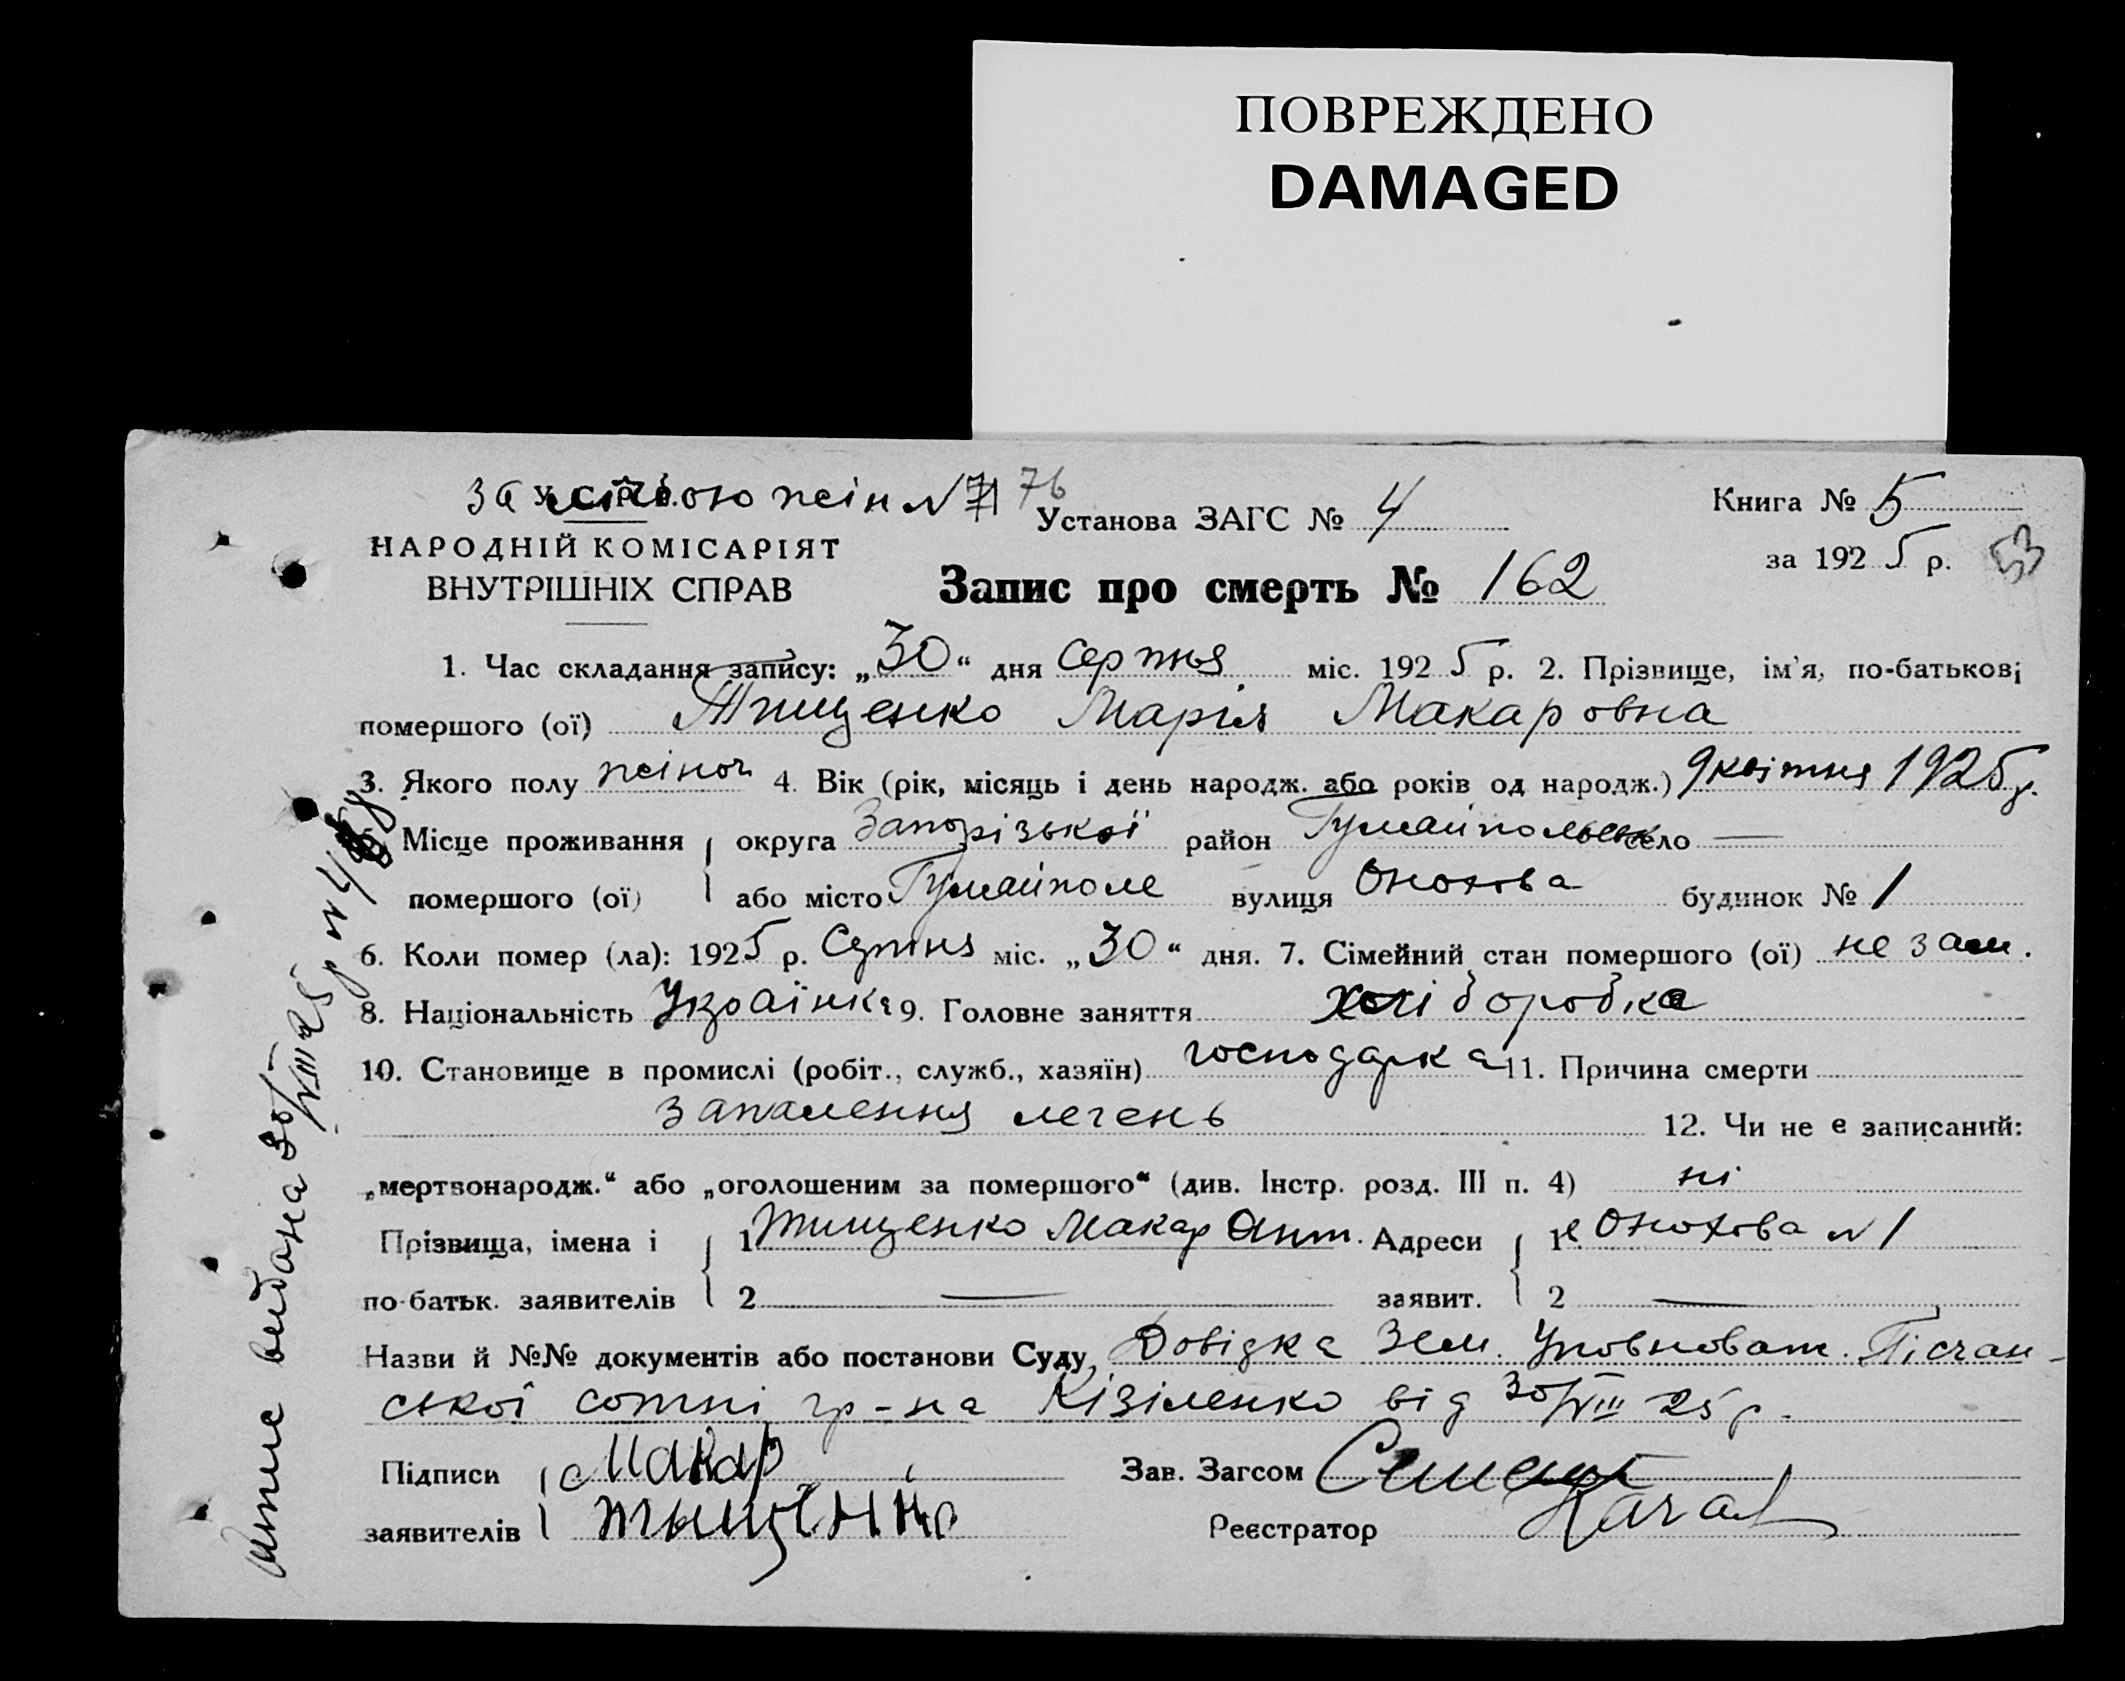 ПОВРЕЖДЕНО
DAMAGED
За У.С.Р.Р. жін № 71 76
Установа ЗАГС № 4
Книга № 5
НАРОДНІЙ КОМІСАРІЯТ
за 1925 р. 53
ВНУТРІШНІХ СПРАВ
Запис про смерть № 162
1. Час складання запису: „30“ дня серпня міс. 1925 р. 2. Прізвище, ім'я, по-батькові
помершого (ої) Тищенко Марія Макаровна
3. Якого полу жіноч 4. Вік (рік, місяць і день народж. або років од народж.) 9 квітня 1925 р.
5. Місце проживання округа Запорізької район село —
помершого (ої) або місто Гуляйполе вулиця будинок № 1
6. Коли помер (ла): 1925 р. Серпня міс. „30“ дня. 7. Сімейний стан помершого (ої) не зам.
8. Національність Українка 9. Головне заняття хліборобка
10. Становище в промислі (робіт., служб., хазяїн) господарка 11. Причина смерти
запалення легень 12. Чи не є записаний:
„мертвонародж.“ або „оголошеним за помершого“ (див. Інстр. розд. III п. 4) ні
Прізвища, імена і 1 Тищенко Макар Ант. Адреси 1 № 1
по-батьк. заявителів 2 — заявит. 2 —
Назви й №№ документів або постанови Суду Довідка Зем. Уповноваж. Пісчан-
ської сотні гр-на Кізіленко від 30/VIII 25 р.
Підписи Макар Зав. Загсом
заявителів Тыщенко Реєстратор
видана 30/VIII 25 р. №